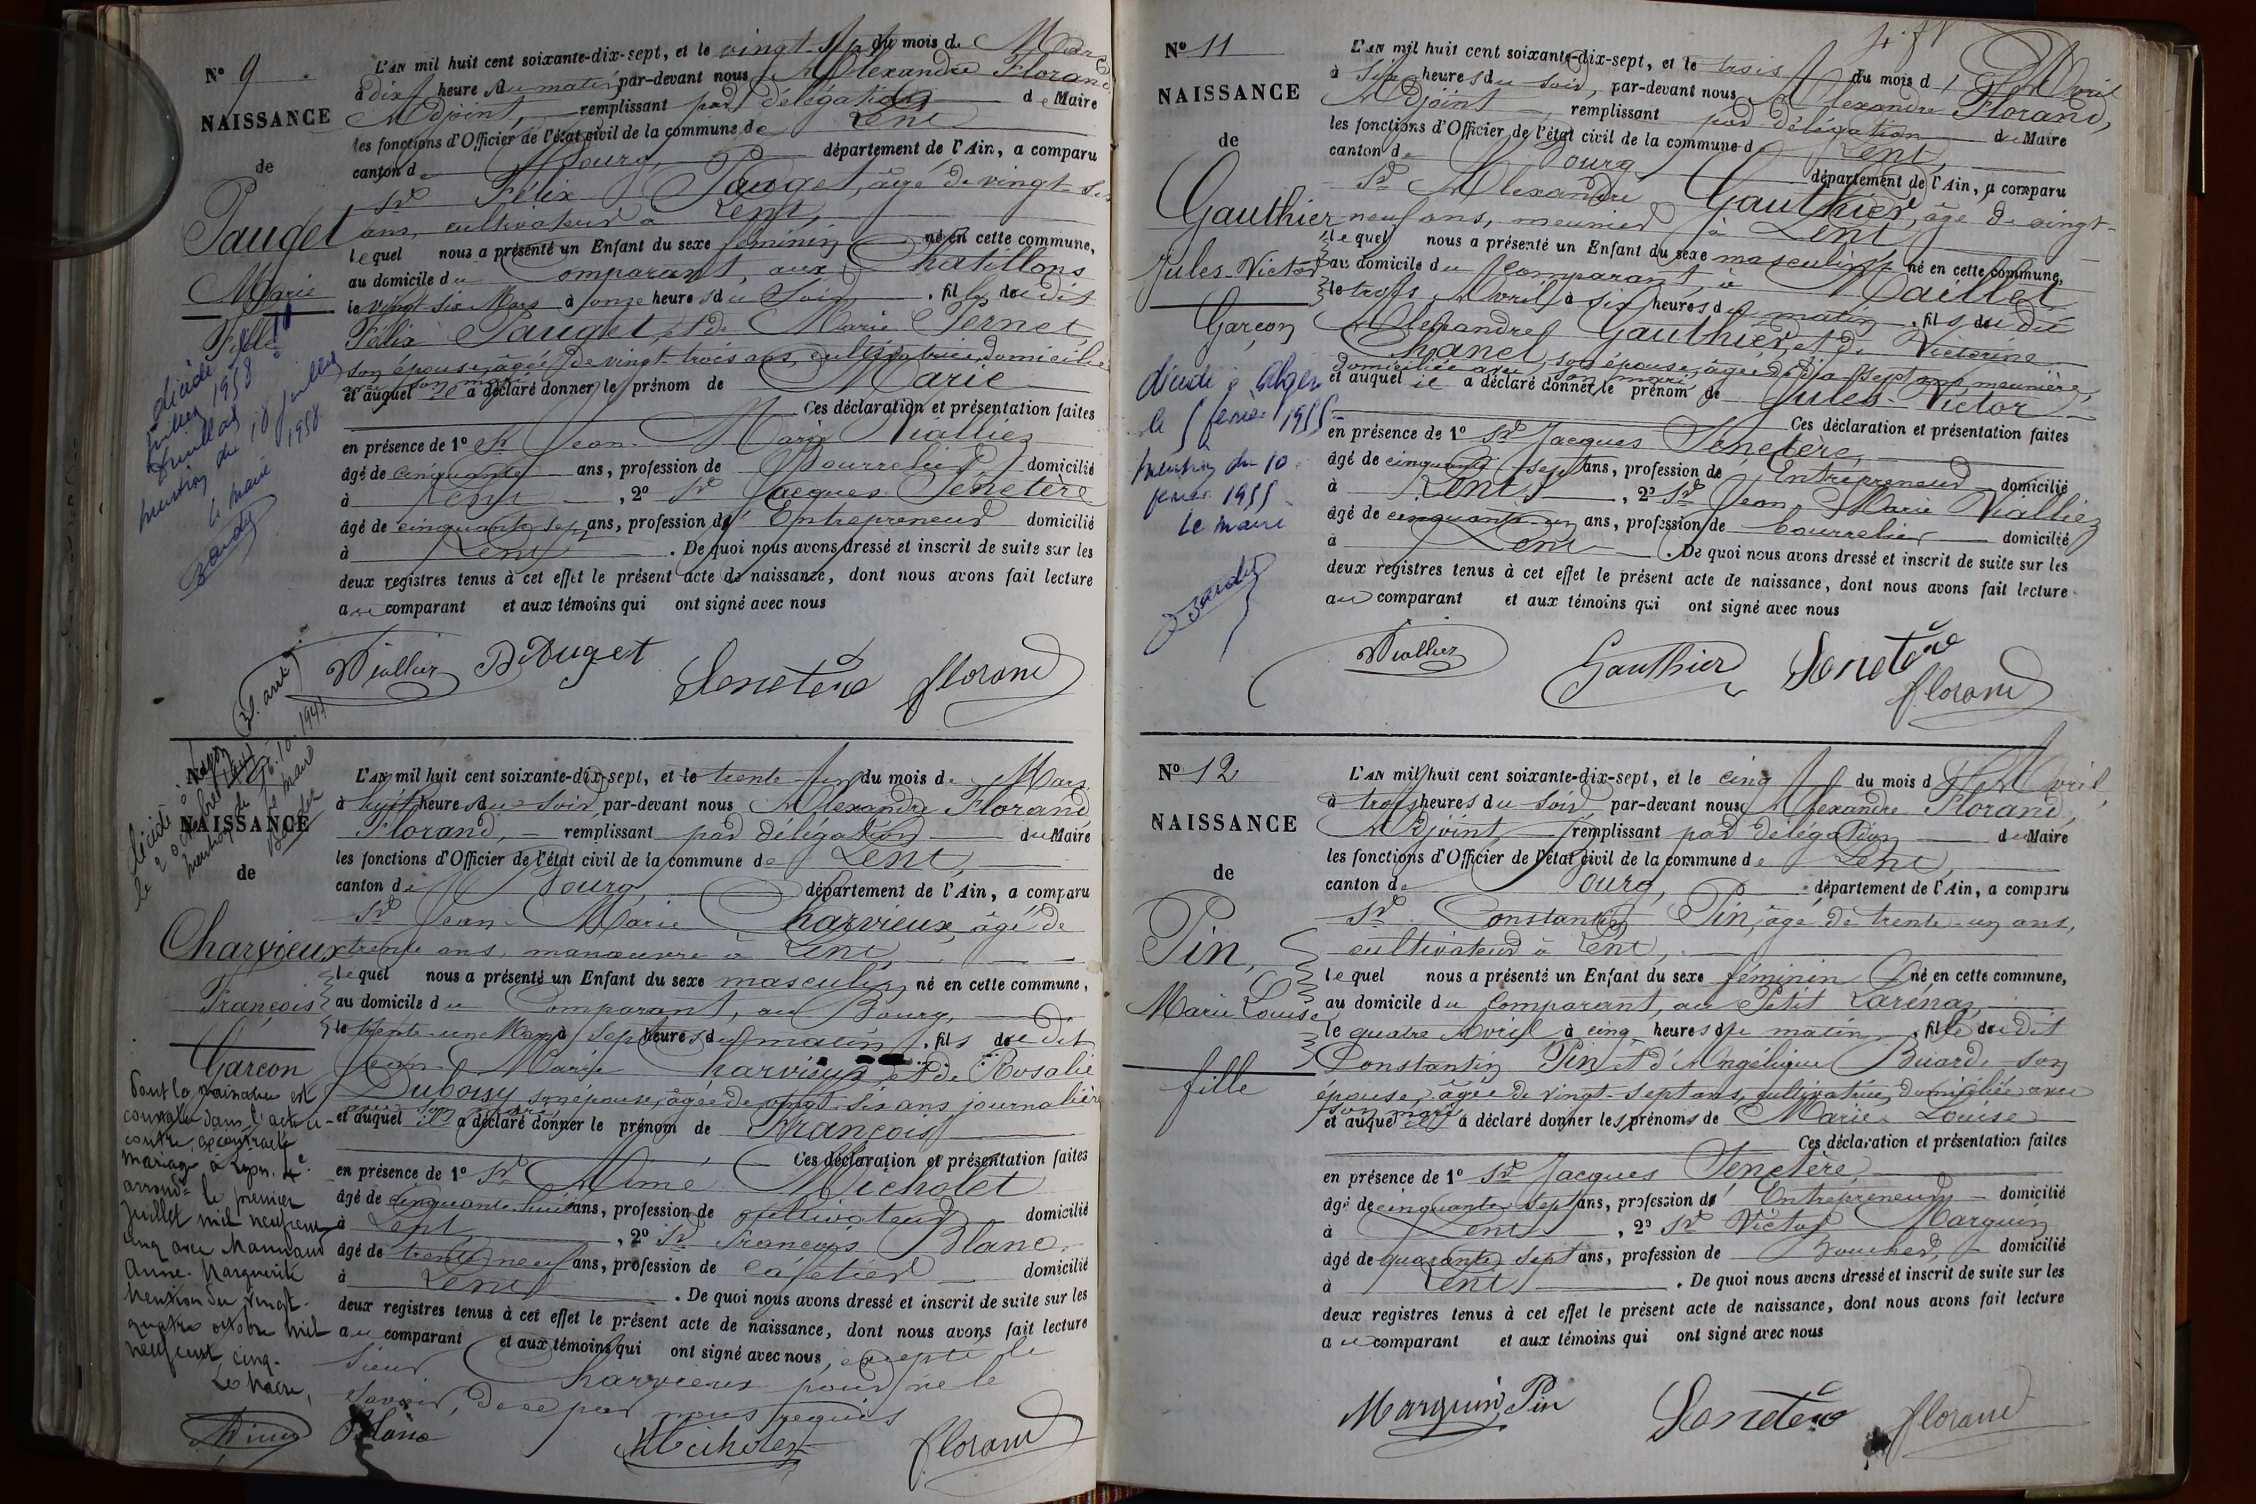 N° 9
NAISSANCE
de
Pauget
Marie
Fille
décédée
juillet 1958
mention du 10 juillet
1958
le maire
L'AN mil huit cent soixante-dix-sept, et le vingt-sept du mois de Mars
à dix heures du matin par-devant nous Alexandre Florand
Adjoint, remplissant par délégation de Maire
les fonctions d'Officier de l'état civil de la commune de Lent
canton de Bourg, département de l'Ain, a comparu
Sr Félix Pauget, âgé de vingt-six
ans, cultivateur à Lent,
lequel nous a présenté un Enfant du sexe féminin né en cette commune,
au domicile du Comparant, aux Chatillons
le vingt six Mars à onze heures du Soir, . fille du dit
Félix Pauget, et de Marie Pernet,
son épouse, âgée de vingt-trois ans, cultivatrice, domiciliée
avec son mari
et auquel il a déclaré donner le prénom de Marie
Ces déclaration et présentation faites
en présence de 1° Sr Jean-Marie Viallier
âgé de cinquante ans, profession de Bourrelier, domicilié
à Lent , 2° Sr Jacques Senetère
âgé de cinquante sept ans, profession d' Entrepreneur domicilié
à Lent . De quoi nous avons dressé et inscrit de suite sur les
deux registres tenus à cet effet le présent acte de naissance, dont nous avons fait lecture
au comparant et aux témoins qui ont signé avec nous
Viallier Pauget Senetère Florand
NAISSANCE
de
Charvieux
François
Garçon
décédé à Lyon
le 2 octobre 1941
mention du 16.10.1941
Le maire
Dont la naissance est
constatée dans l'acte ci-
contre, a contracté
mariage à Lyon. 4e
arrondt le premier
Juillet mil neuf cent
cinq avec Mannand
Anne-Marguerite
Mention du vingt-
quatre octobre mil
neuf cent cinq.
Le Maire,
L'AN mil huit cent soixante-dix-sept, et le trente-un du mois de Mars
à huit heures du Soir par-devant nous Alexandre Florand
Florand, remplissant par délégation du Maire
les fonctions d'Officier de l'état civil de la commune de Lent,
canton de Bourg, département de l'Ain, a comparu
Sr Jean-Marie Charvieux, âgé de
trente ans, manœuvre à Lent,
lequel nous a présenté un Enfant du sexe masculin né en cette commune,
au domicile du Comparant, au Bourg,
le trente-un Mars à Sept heures du matin . fils du dit
Jean-Marie Charvieux et de Rosalie
Duborjy son épouse, âgée de vingt-six ans journalière
avec son mari
et auquel il a déclaré donner le prénom de François
Ces déclaration et présentation faites
en présence de 1° Sr Aimé Micholet
âgé de cinquante-huit ans, profession de cultivateur domicilié
à Lent , 2° Sr François Blanc
âgé de trente-neuf ans, profession de cafetier domicilié
à Lent . De quoi nous avons dressé et inscrit de suite sur les
deux registres tenus à cet effet le présent acte de naissance, dont nous avons fait lecture
au comparant et aux témoins qui ont signé avec nous, excepté le
sieur Charvieux pour ne le
savoir, de ce par nous requis
Blanc Micholet Florand
N° 11
NAISSANCE
de
Gauthier
Jules-Victor
Garçon
décédé à Alger
le 5 février 1955
mention du 10
février 1955
Le maire
L'AN mil huit cent soixante-dix-sept, et le trois du mois d'Avril
à six heures du soir, par-devant nous Alexandre Florand,
Adjoint remplissant par délégation du Maire
les fonctions d'Officier de l'état civil de la commune de Lent,
canton de Bourg département de l'Ain, a comparu
Sr Alexandre Gauthier, âgé de vingt-
neuf ans, meunier à Lent
lequel nous a présenté un Enfant du sexe masculin né en cette commune,
au domicile du comparant, à Maillet
le trois Avril à six heures du matin . fils du dit
Alexandre Gauthier, et de Victorine
Chanel, son épouse, âgée de dix-sept ans, meunière,
domiciliée avec son mari
et auquel il a déclaré donner le prénom de Jules-Victor
Ces déclaration et présentation faites
en présence de 1° Sr Jacques Senetère,
âgé de cinquante sept ans, profession d' Entrepreneur domicilié
à Lent, , 2° Sr Jean Marie Viallier
âgé de cinquante-un ans, profession de bourrelier domicilié
à Lent . De quoi nous avons dressé et inscrit de suite sur les
deux registres tenus à cet effet le présent acte de naissance, dont nous avons fait lecture
au comparant et aux témoins qui ont signé avec nous
Viallier Gauthier Senetère Florand
N° 12
NAISSANCE
de
Pin,
Marie Louise
fille
L'AN mil huit cent soixante-dix-sept, et le cinq du mois d'Avril,
à trois heures du soir par-devant nous Alexandre Florand,
Adjoint remplissant par délégation du Maire
les fonctions d'Officier de l'état civil de la commune de Lent,
canton de Bourg, département de l'Ain, a comparu
Sr Constantin Pin, âgé de trente-un ans,
cultivateur à Lent,
lequel nous a présenté un Enfant du sexe féminin né en cette commune,
au domicile du Comparant, au Petit Larenas,
le quatre Avril à cinq heures du matin . fille du dit
Constantin Pin et d'Angélique Buard son
épouse, âgée de vingt-sept ans, cultivatrice, domiciliée avec
son mari
et auquel il a déclaré donner les prénoms de Marie Louise
Ces déclaration et présentation faites
en présence de 1° Sr Jacques Senetère
âgé de cinquante sept ans, profession d' Entrepreneur domicilié
à Lent , 2° Sr Victor Marguin
âgé de quarante sept ans, profession de Boucher, domicilié
à Lent . De quoi nous avons dressé et inscrit de suite sur les
deux registres tenus à cet effet le présent acte de naissance, dont nous avons fait lecture
au comparant et aux témoins qui ont signé avec nous
Marguin Pin Senetère Florand